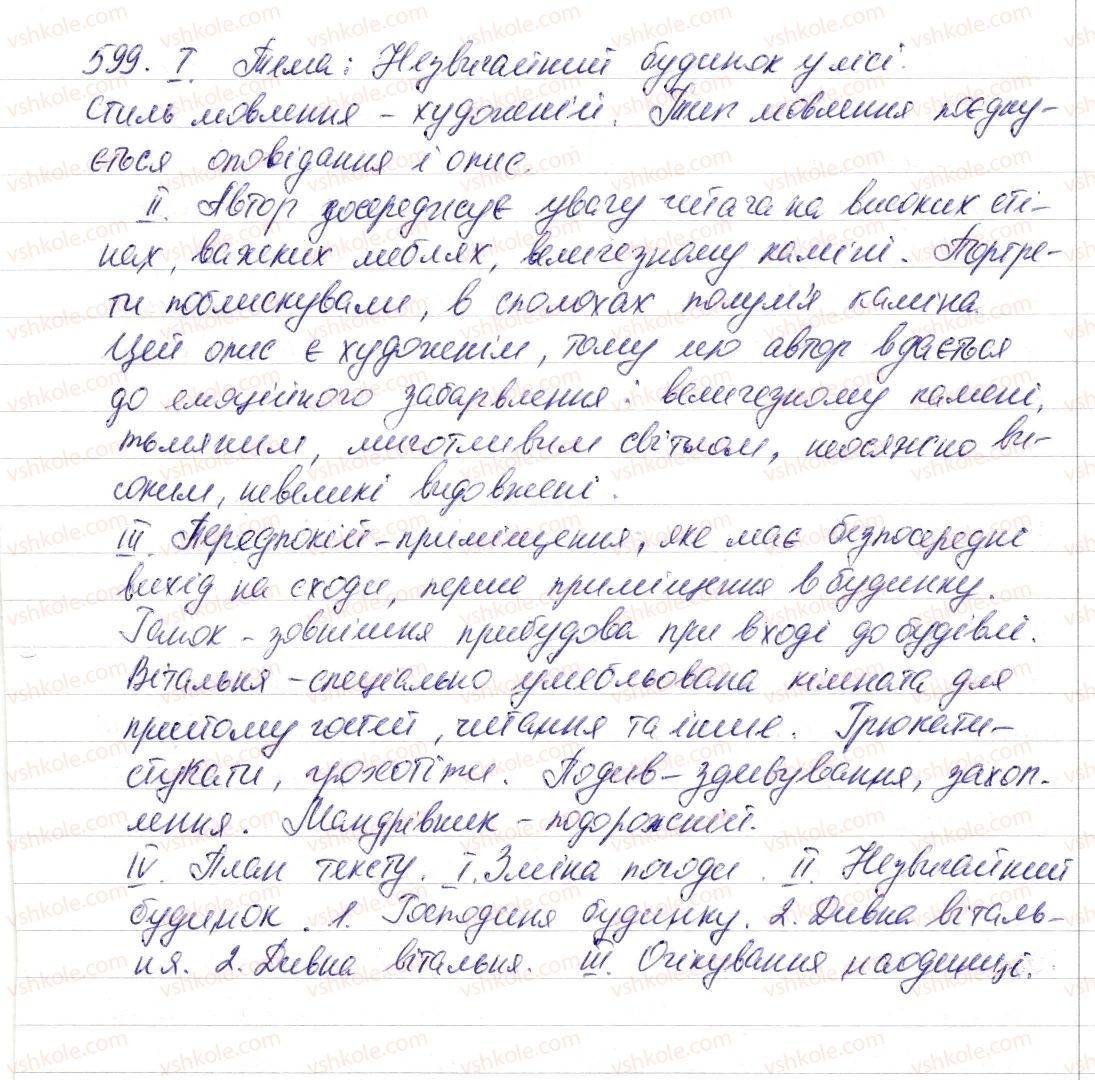 599. I. Тема: Незвичайний будинок у лісі.
Стиль мовлення - художній. Тип мовлення поєдну-
ється оповідання і опис.
II. Автор зосереджує увагу читача на високих сті-
нах, важких меблях, величезному каміні. Портре-
ти поблискували, в сполохах полум'я каміна.
Цей опис є художнім, тому що автор вдається
до емоційного забарвлення: величезному камені,
тьмяним, миготливим світлом, неосяжно ви-
соким, невеликі видовжені.
III. Передпокій - приміщення, яке має безпосередні
вихід на сходи, перше приміщення в будинку.
Ганок - зовнішня прибудова при вході до будівлі.
Вітальня - спеціально умебльована кімната для
прийому гостей, читання та інше. Грюкати -
стукати, грохотіти. Подив - здивування, захоп-
лення. Мандрівник - подорожній.
IV. План тексту. I. Зміна погоди. II. Незвичайний
будинок. 1. Господиня будинку. 2. Дивна віталь-
ня. 2. Дивна вітальня. III. Очікування наодинці.